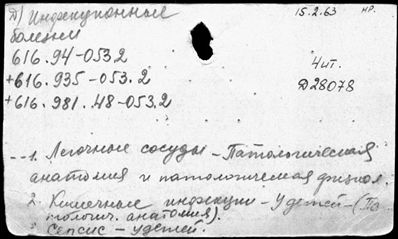 П) Инфекционные 15.2.63 нр.
болезни
616.94-053.2
+616.935-053.2 Чит.
+616.981.48-053.2 Д28078
1. Легочные сосуды - Патологическая
анатомия и патологическая физиол.
2. Кишечные инфекции - У детей - (Па
тологич. анатомия).
3. Сепсис - у детей.